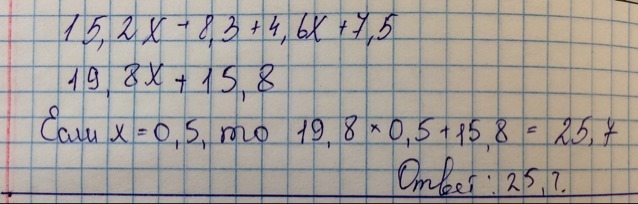 15,2x - 8,3 + 4,6x + 7,5
19,8x + 15,8
Если x = 0,5, то 19,8 × 0,5 + 15,8 = 25,7
Ответ: 25,7.